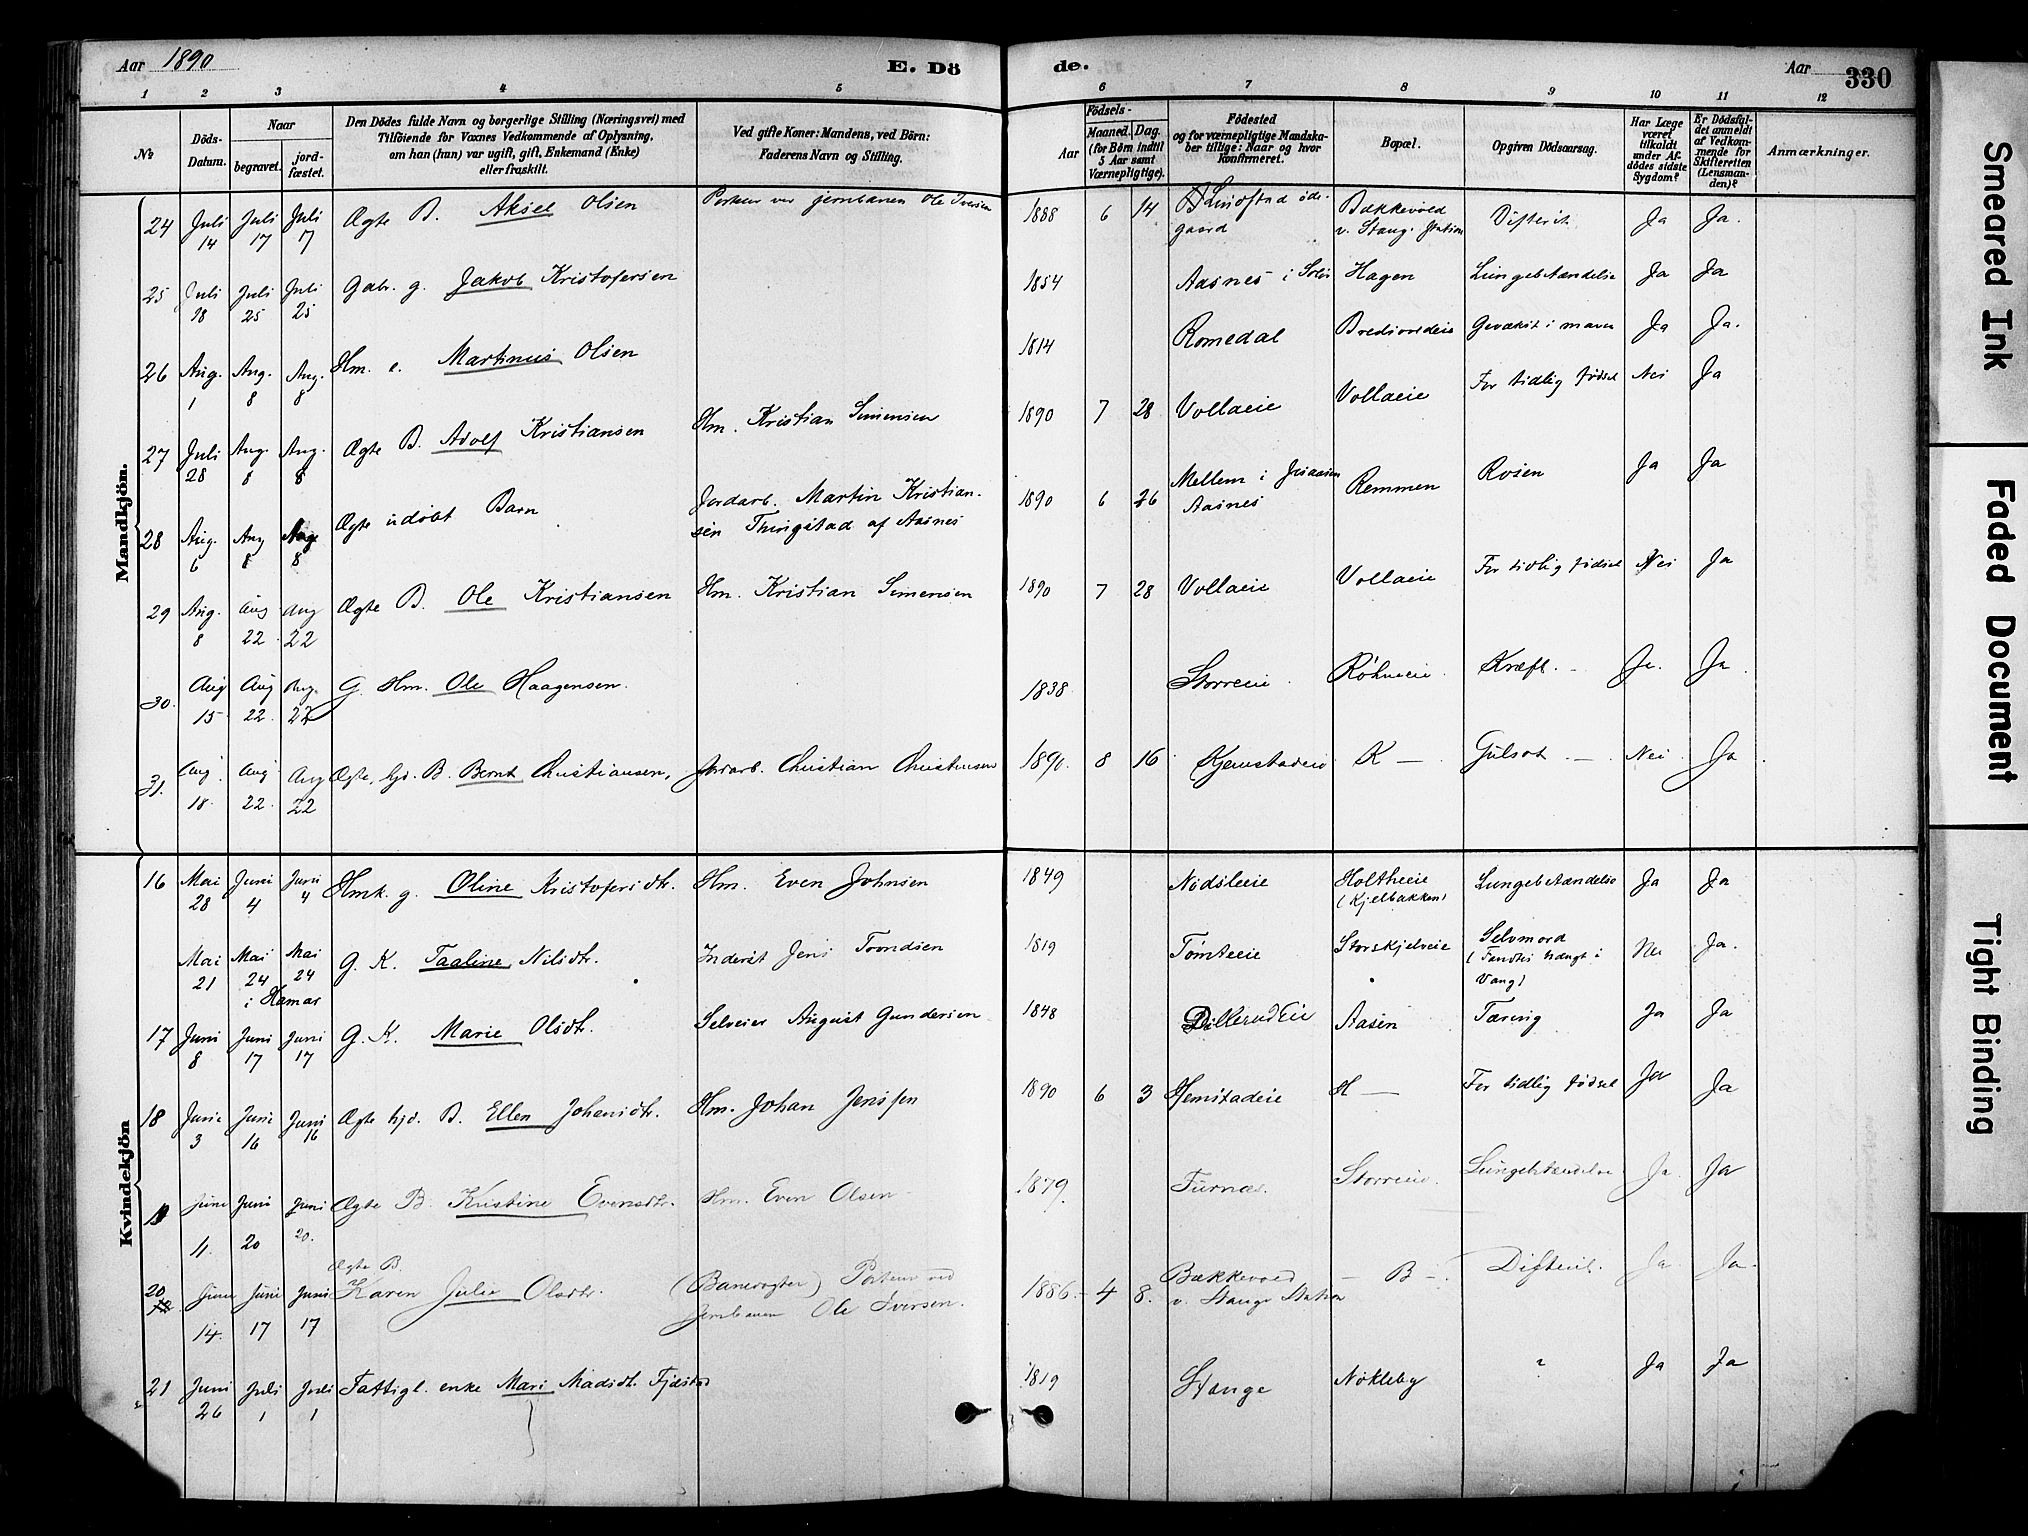 Aar 1890
E. Dö
de.
Aar
330
1 2 3 4 5 6 7 8 9 10 11 12
№
Döds-Datum.
Naar
begravet.
jord-fæstet.
Den Dödes fulde Navn og borgerlige Stilling (Næringsvei) med
Tilföiende for Voxnes Vedkommende af Oplysning,
om han (hun) var ugift, gift, Enkemand (Enke)
eller fraskilt.
Ved gifte Koner: Mandens, ved Börn:
Faderens Navn og Stilling.
Födsels-
Aar
Maaned. Dag.
(for Börn indtil
5 Aar samt
Værnepligtige).
Födested
og for værnepligtige Mandska-
ber tillige: Naar og hvor
Konfirmeret.
Bopæl.
Opgiven Dödsaarsag.
Har Læge
været
tilkaldt
under Af-
dödes sidste
Sygdom?
Er Dödsfal-
det anmeldt
af Vedkom-
mende for
Skifteretten
(Lensman-
den)?
Anmærkninger.
Mandkjön.
24 Juli 14 Juli 17 Juli 17 Ægte B. Aksel Olsen Porteur ved jernbanen Ole Iversen 1888 6 14 Lindstad öde-
gaard Bækkevold v. Stange Station Difterit Ja Ja.
25 Juli 18 Juli 25 Juli 25 Gabr. g. Jakob Kristofersen 1854 Aasnes i Solör Hagen Lungebetændelse Ja Ja
26 Aug. 1 Aug. 8 Aug. 8 Hm. e. Martinus Olsen 1814 Romedal Gevækst i maven Ja Ja.
27 Juli 28 Aug. 8 Aug. 8 Ægte B. Adolf Kristiansen Hm. Kristian Simensen 1890 7 28 Vollaeie Vollaeie For tidlig födsel Nei Ja
28 Aug. 6 Aug 8 Aug 8 Ægte udöbt Barn Jordarb. Martin Kristian-
sen Thingstad af Aasnes 1890 6 26 Mellem i
Aasnes Remmen Rosen Ja Ja
29 Aug. 8 Aug 22 Aug 22 Ægte B. Ole Kristiansen Hm. Kristian Simensen 1890 7 28 Vollaeie Vollaeie For tidlig födsel Nei Ja
30. Aug 15 Aug 22 Aug. 22 G. Hm. Ole Haagensen. 1838 Storreeie Röhneeie Kræft. Ja. Ja
31. Aug 18. Aug 22. Aug 22 Ægte, hjd. B. Bernt Christiansen, Jordarb. Christian Christensen 1890. 8 16 Kjemstadeie K — Gulsot — Nei Ja
Kvindekjön
16 Mai 28 Juni 4 Juni 4 Hmk. g. Oline Kristofersdtr. Hm. Even Johnsen 1849 Nödsleeie Holtheeie
(Kjelbakken) Lungebetændelse Ja Ja
Mai 21 Mai 24 Mai 24
i Hamar G. K. Taaline Nilsdtr. Inderst Jens Trondsen 1819 Tömteeie Storskjelveie Selvmord
(Fandtes hængt i
Vang) Nei Ja.
17 Juni 8 Juni 17 Juni 17 G. K. Marie Olsdtr. Selveier August Gundersen 1848 Dillerudeie Aasen Tæring Ja Ja
18 Juni 3 Juni 16 Juni 16 Ægte hjd. B. Ellen Johansdtr. Hm. Johan Jenssen 1890 6 3 Hemstadeie H — For tidlig födsel Ja Ja
Juni 11. Juni 20 Juni 20. Ægte B. Kristine Evensdtr. Hm. Even Olsen 1879. Furnæs. Storreeie. Lungebetændelse Ja Ja
20 Juni 14. Juni 17 Juni 17 Ægte B.
Karen Julie Olsdtr. (Banevogter) Porteur ved
Jernbanen Ole Iversen. 1886. 4 8. Bækkevold
v. Stange Station — B — Difterit. Ja Ja.
21 Juni 26 Juli 1 Juli 1 Fattigl. enke Mari Madsdtr. Fjelstad 1819 Stange Nökleby ? Ja Ja
Smeared Ink
Faded Document
Tight Binding